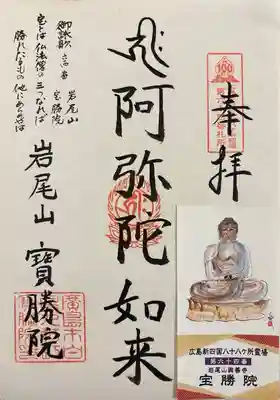 奉拝
阿弥陀如来
岩尾山 寶勝院
御詠歌
岩尾山
宝勝院
宝とは仏法僧の三つなれば
勝れたるもの他にあら
100
広島新四国八十八ケ所霊場
第六十四番
岩尾山興善寺
宝勝院